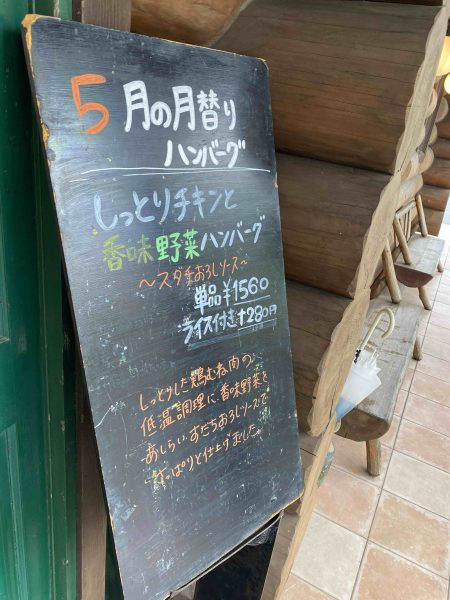 5月の月替り
ハンバーグ
しっとりチキンと
香味野菜ハンバーグ
～スダチおろしソース～
単品¥1560
ライス付き+280円
しっとりした鶏むね肉の
低温調理に、香味野菜を
あしらい、すだちおろしソースで
さっぱりと仕上げました。